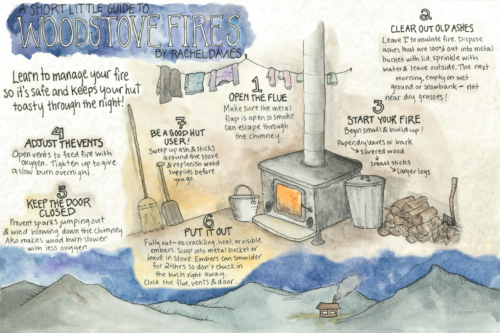 A SHORT LITTLE GUIDE TO
WOODSTOVE FIRES
BY RACHEL DAVIES
Learn to manage your fire
so it's safe and keeps your hut
toasty through the night!
1
OPEN THE FLUE
Make sure the metal
flap is open so smoke
can escape through
the chimney!
2
CLEAR OUT OLD ASHES
Leave 1" to insulate fire. Dispose
ashes that are 100% out into metal
bucket with lid, sprinkle with
water & leave outside. The next
morning, empty on wet
ground or snowbank - not
near dry grasses!
3
START YOUR FIRE
Begin small & build up!
Paper, dry leaves or bark
→ slivered wood
→ small sticks
→ larger logs
4
ADJUST THE VENTS
Open vents to feed fire with
oxygen. Tighten up to give
a slow burn overnight.
5
KEEP THE DOOR
CLOSED
Prevent sparks jumping out
& wind blowing down the chimney.
Also makes wood burn slower
with less oxygen
6
PUT IT OUT
Fully out - no crackling, heat, or visible
embers. Scoop into metal bucket or
leave in stove. Embers can smolder
for 24hrs so don't chuck in
the bush right away.
Close the flue, vents & door.
7
BE A GOOD HUT
USER!
Sweep up ash & sticks
around the stove
& replenish wood
supplies before
you go.